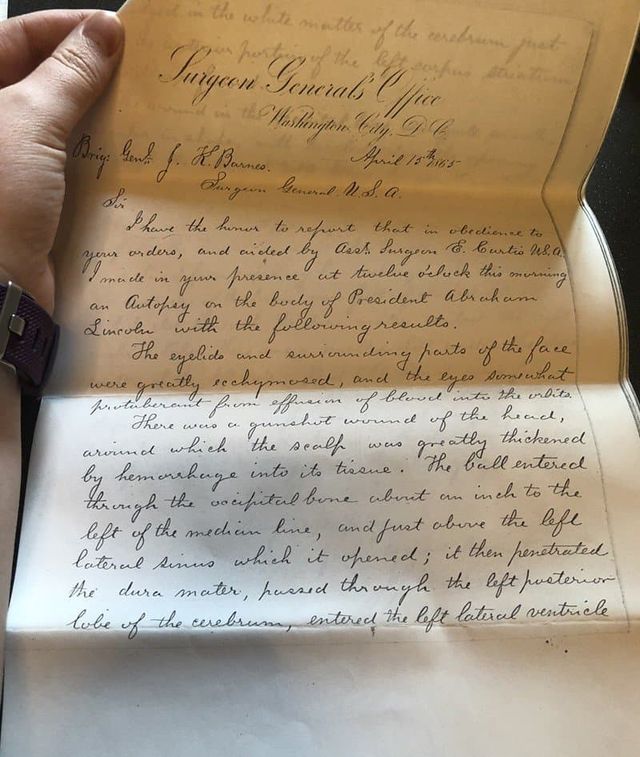 in the white matter of the cerebrum just
portion of the left corpus striatum
Surgeon General's Office
Washington City, D.C.
April 15th 1865
Brig: Genl. J. K. Barnes.
Surgeon General U.S.A.
Sir
I have the honor to report that in obedience to
your orders, and aided by Asst. Surgeon E. Curtis U.S.A.
I made in your presence at twelve o'clock this morning
an Autopsy on the body of President Abraham
Lincoln with the following results.
The eyelids and surrounding parts of the face
were greatly ecchymosed, and the eyes somewhat
protuberant from effusion of blood into the orbits.
There was a gunshot wound of the head,
around which the scalp was greatly thickened
by hemorrhage into its tissue. The ball entered
through the occipital bone about an inch to the
left of the median line, and just above the left
lateral sinus which it opened; it then penetrated
the dura mater, passed through the left posterior
lobe of the cerebrum, entered the left lateral ventricle